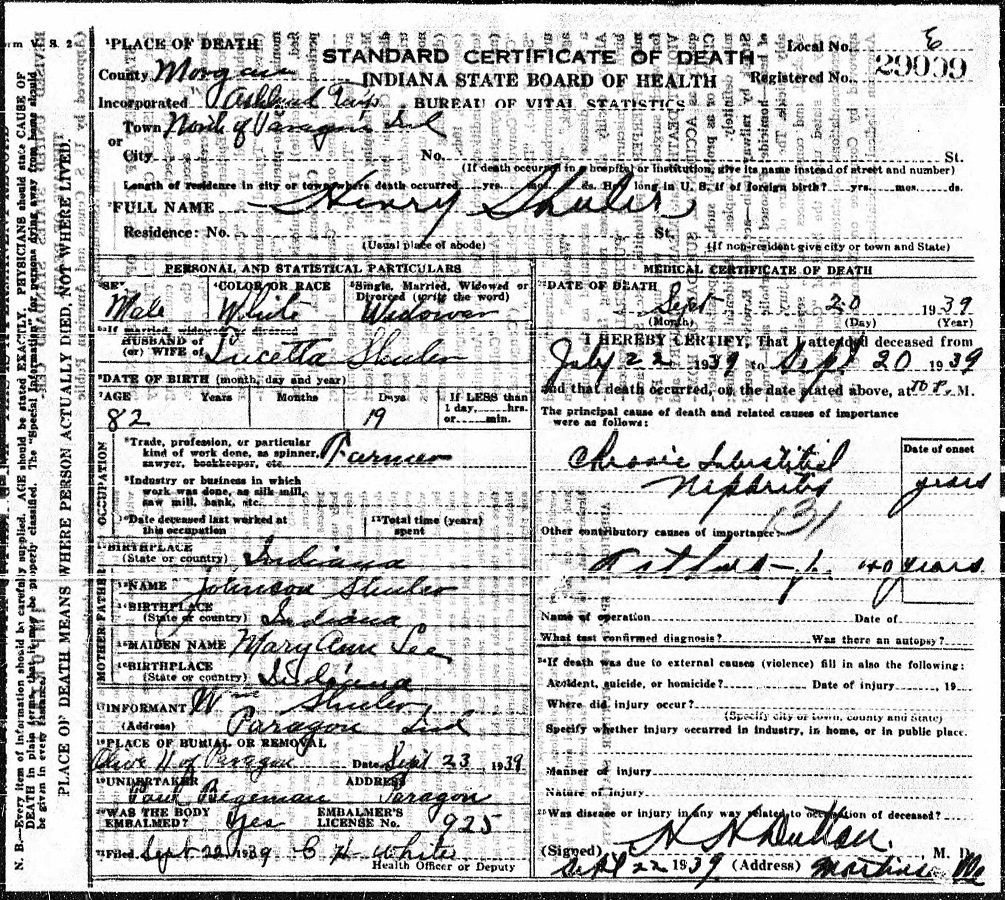 Form V. S. 2
N. B.—Every item of information should be carefully supplied. AGE should be stated EXACTLY. PHYSICIANS should state CAUSE OF
DEATH in plain terms, that it may be properly classified. The "Special Information" for persons dying away from home should
be given in every instance.
PLACE OF DEATH MEANS WHERE PERSON ACTUALLY DIED, NOT WHERE LIVED.
PLACE OF DEATH
County Morgan
Incorporated Ashland Twp
Town North of Paragon Ind
or
City No. St.
STANDARD CERTIFICATE OF DEATH
INDIANA STATE BOARD OF HEALTH
BUREAU OF VITAL STATISTICS
Local No. 6
Registered No. 29099
(If death occurred in a hospital or institution, give its name instead of street and number)
Length of residence in city or town where death occurred yrs. mos. ds. How long in U. S. if of foreign birth? yrs. mos. ds.
FULL NAME Henry Shuler
Residence: No. St.
(Usual place of abode) (If non-resident give city or town and State)
PERSONAL AND STATISTICAL PARTICULARS
SEX Male
COLOR OR RACE White
Single, Married, Widowed or
Divorced (write the word)
Widower
If married, widowed or divorced
HUSBAND of
(or) WIFE of Lucetta Shuler
DATE OF BIRTH (month, day and year)
AGE Years Months Days If LESS than
1 day, hrs.
or min.
82 19
OCCUPATION
Trade, profession, or particular
kind of work done, as spinner,
sawyer, bookkeeper, etc. Farmer
Industry or business in which
work was done, as silk mill,
saw mill, bank, etc.
Date deceased last worked at
this occupation
Total time (years)
spent
BIRTHPLACE
(State or country) Indiana
FATHER
NAME Johnson Shuler
BIRTHPLACE
(State or country) Indiana
MOTHER
MAIDEN NAME Mary Ann Lee
BIRTHPLACE
(State or country) Indiana
INFORMANT Wm Shuler
(Address) Paragon Ind
PLACE OF BURIAL OR REMOVAL
Olive H of Paragon Date Sept 23, 1939
UNDERTAKER ADDRESS
Paul Bigeman Paragon
WAS THE BODY
EMBALMED? Yes
EMBALMER'S
LICENSE No. 925
Filed Sept 22 1939 C H White
Health Officer or Deputy
MEDICAL CERTIFICATE OF DEATH
DATE OF DEATH
Sept 20 1939
(Month) (Day) (Year)
I HEREBY CERTIFY, That I attended deceased from
July 22 1939 to Sept 20 1939
and that death occurred, on the date stated above, at P. M.
The principal cause of death and related causes of importance
were as follows:
Date of onset
Chronic Interstitial
Nephritis years
131
Other contributory causes of importance:
40 years
Name of operation Date of
What test confirmed diagnosis? Was there an autopsy?
If death was due to external causes (violence) fill in also the following:
Accident, suicide, or homicide? Date of injury , 19
Where did injury occur?
(Specify city or town, county and State)
Specify whether injury occurred in industry, in home, or in public place.
Manner of injury
Nature of injury
Was disease or injury in any way related to occupation of deceased?
(Signed) H H Dutton. M. D.
Sept 22 1939 (Address)